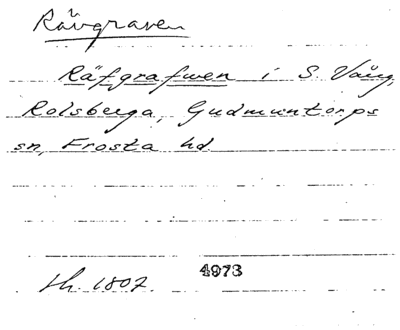 Rävgraven
Räfgrafwen i S. Vång,
Rolsberga, Gudmuntorps
sn, Frosta hd
sh. 1807. 4973